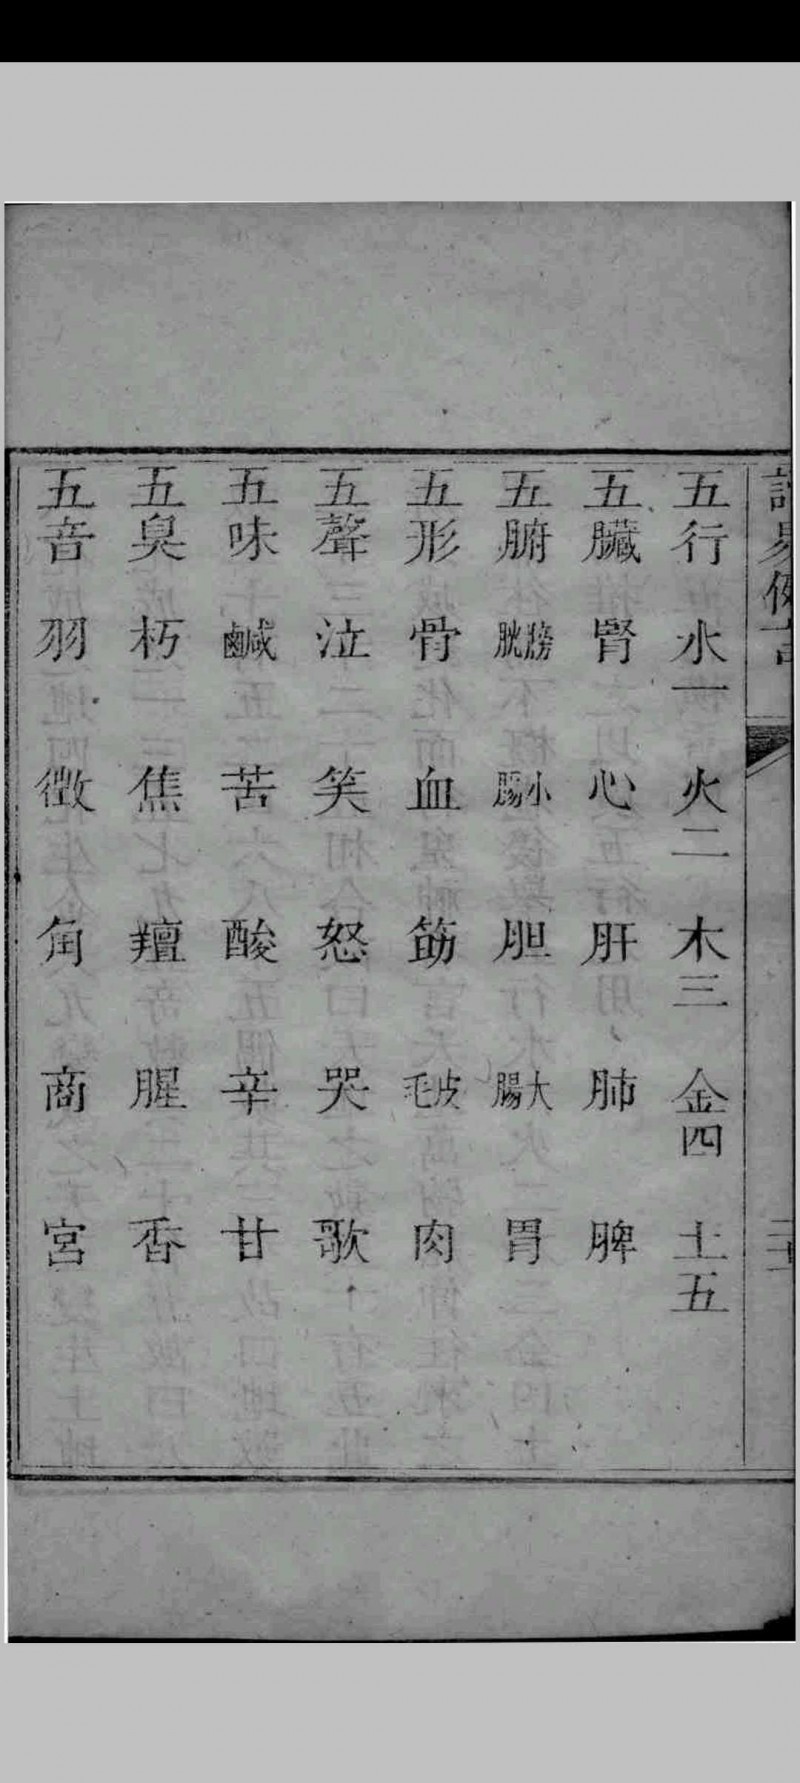 五行 水一 火二 木三 金四 土五
五臟 腎 心 肝 肺 脾
五腑 膀胱 小腸 胆 大腸 胃
五形 骨 血 筋 皮毛 肉
五聲 泣 笑 怒 哭 歌
五味 鹹 苦 酸 辛 甘
五臭 朽 焦 羶 腥 香
五音 羽 徵 角 商 宮